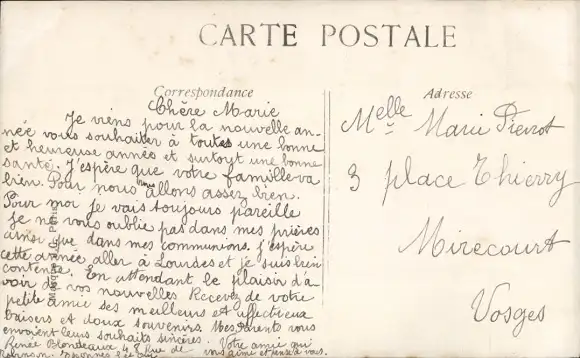 CARTE POSTALE
Correspondance
Chère Marie
Je viens pour la nouvelle an-
née vous souhaiter à toutes une bonne
et heureuse année et surtout une bonne
santé. J'espère que votre famille va
bien. Pour nous nous allons assez bien.
Pour moi je vais toujours pareille
je ne vous oublie pas dans mes prières
ainsi que dans mes communions. J'espère
cette année aller à Lourdes et je suis bien
contente. En attendant le plaisir d'a-
voir de vos nouvelles Recevez de votre
petite amie ses meilleurs et affectueux
baisers et doux souvenirs. Mes parents vous
envoient leurs souhaits sincères. Votre amie qui
vous aime et pense à vous.
Renée Blondeaux 48 Rue de
Adresse
Melle Marie Pierrot
3 place Thierry
Mirecourt
Vosges